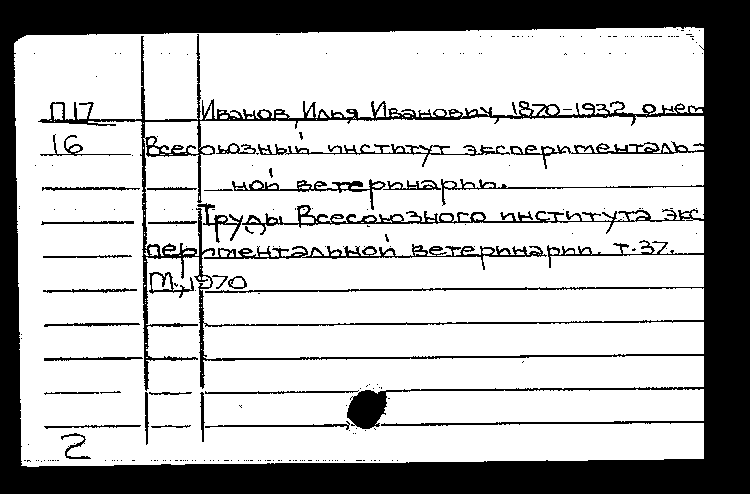 П17 Иванов, Илья Иванович, 1870-1932, о нем
16 Всесоюзный институт эксперименталь-
ной ветеринарии.
Труды Всесоюзного института экс
периментальной ветеринарии. т.37.
М., 1970
2